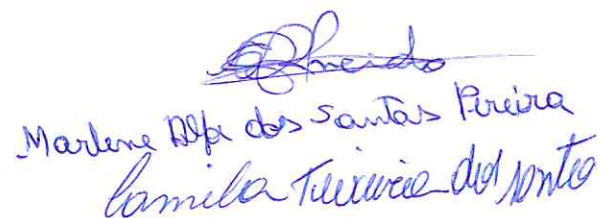 Marlene dos Santos Pereira
Camila Teixeira dos Santos